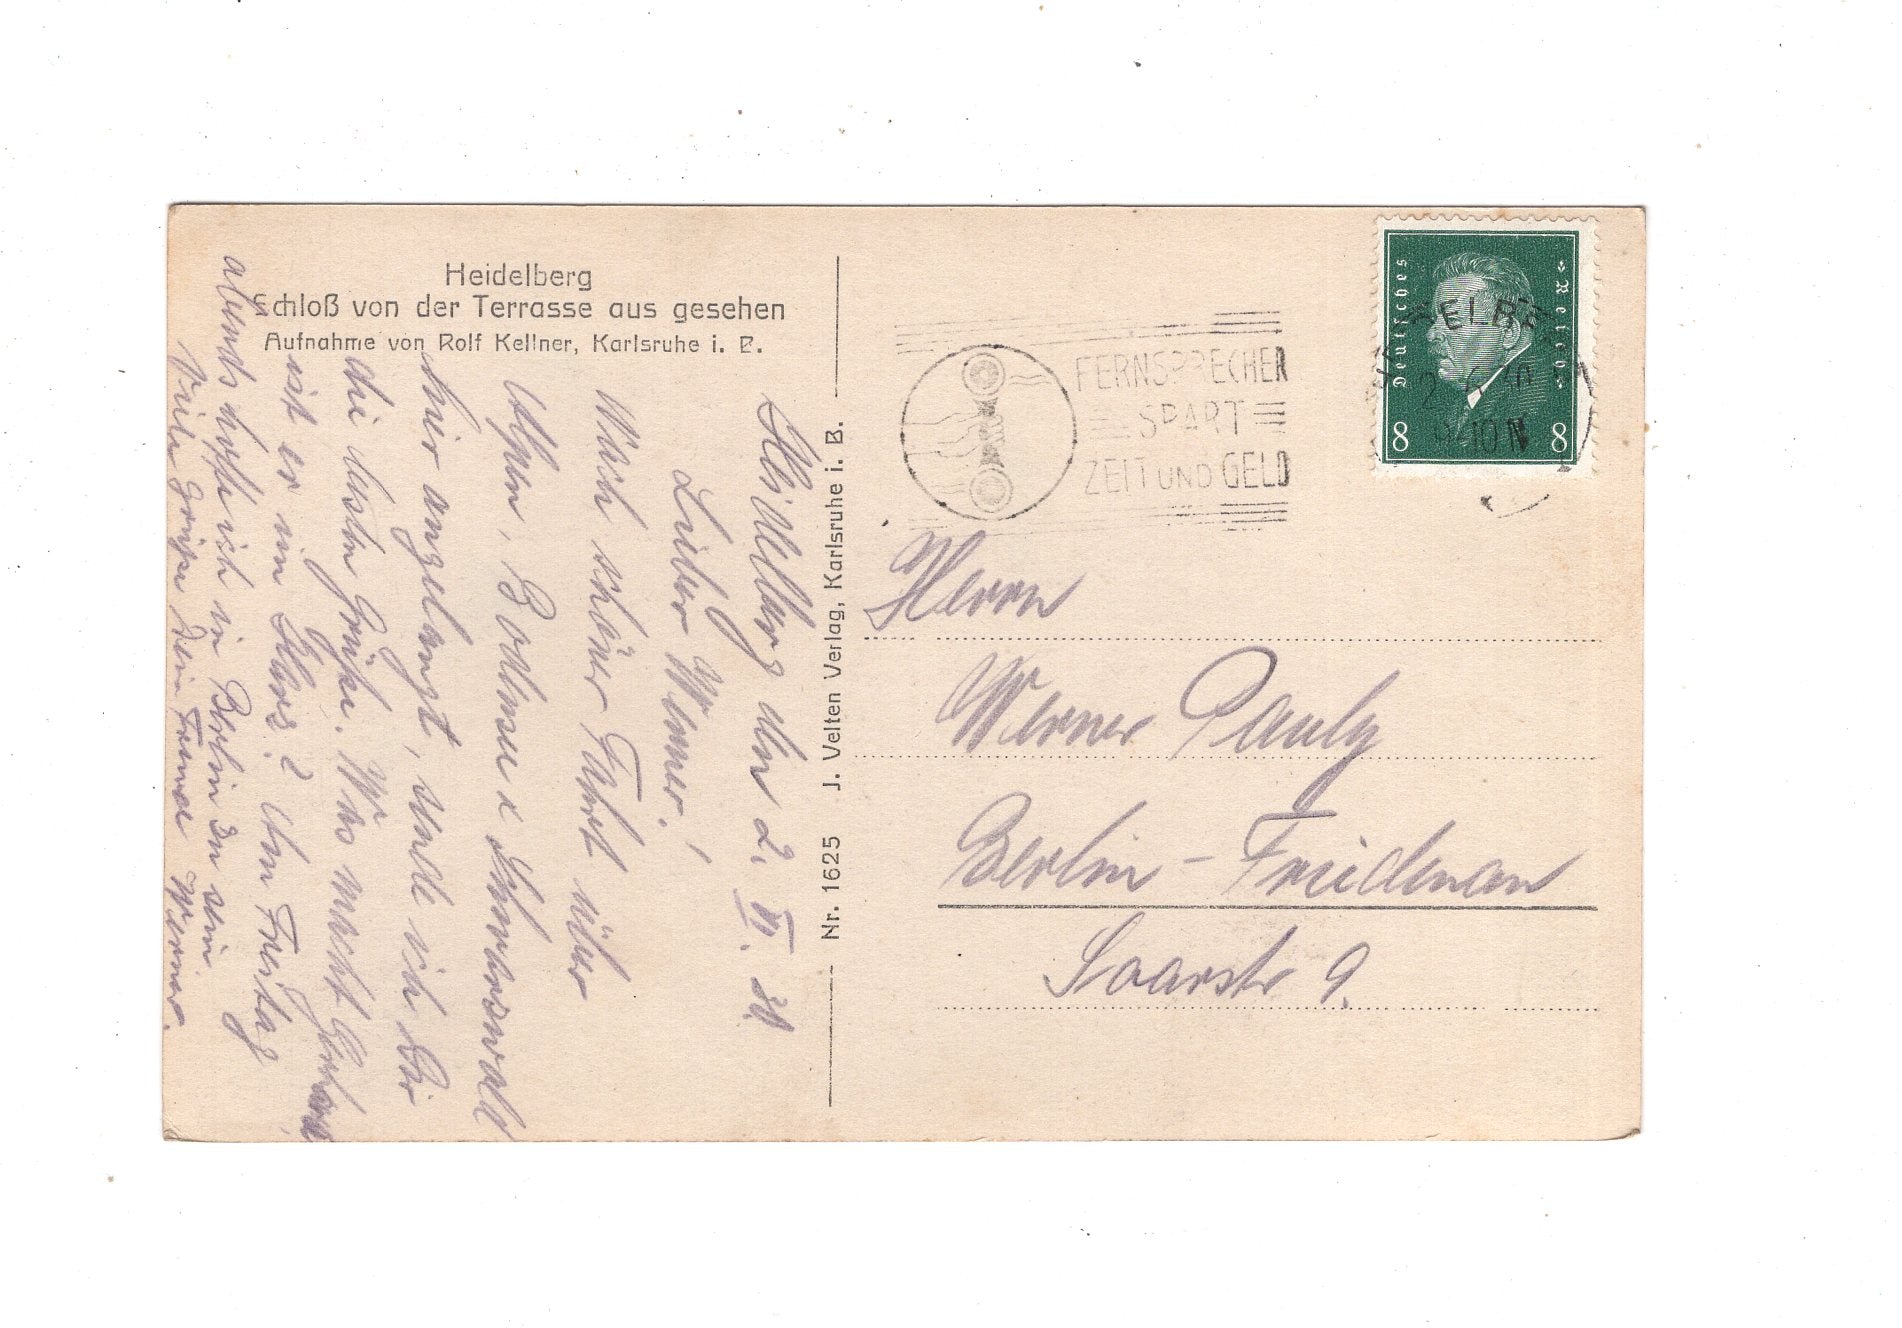 Heidelberg
Schloß von der Terrasse aus gesehen
Aufnahme von Rolf Kellner, Karlsruhe i. B.
Heidelberg den 2. VI. 30.
Lieber Werner!
Nach schöner Fahrt über
Alpen, Bodensee &
hier angelangt, sende ich Dir
die besten Grüße. Was macht Gerhard
ist er im Haus? Am Freitag
abends hoffe ich in Berlin zu sein
Viele Grüße Dein Freund Werner.
Nr. 1625 J. Velten Verlag, Karlsruhe i. B.
FERNSPRECHER
SPART
ZEIT UND GELD
Deutsches Reich
8 8
2.6.30
9-10 N
Herrn
Werner Pauly
Berlin-Friedenau
Saarstr 9.